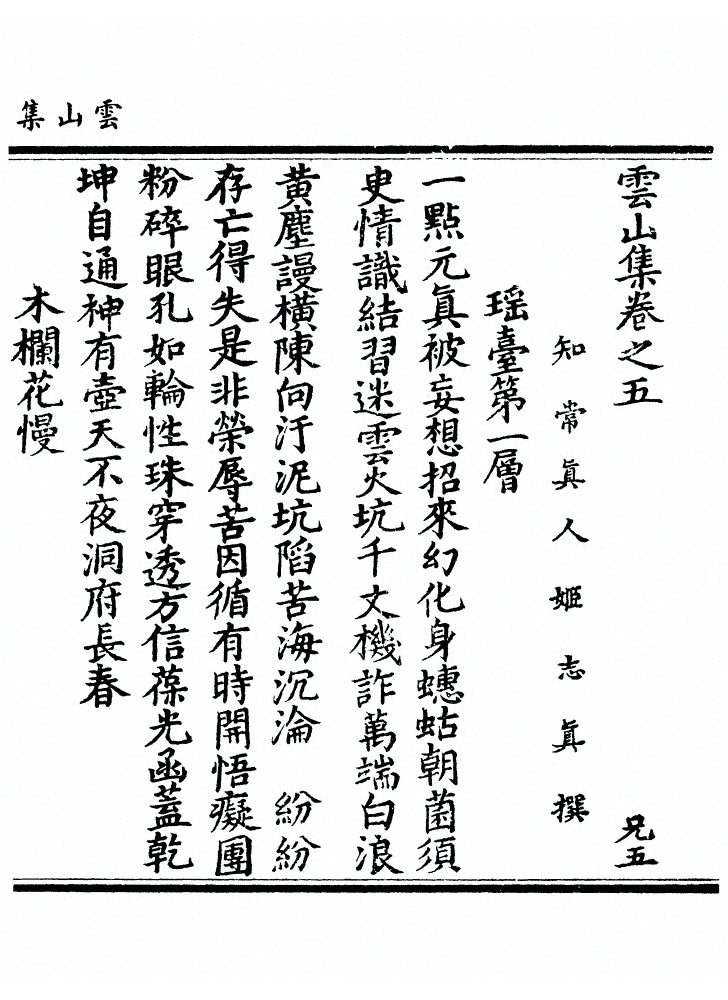 雲山集
雲山集卷之五
兄五
知常眞人姬志眞撰
瑶臺第一層
一點元眞被妄想招來幻化身蟪蛄朝菌須
臾情識結習迷雲火坑千丈機詐萬端白浪
黃塵謾橫陳向汙泥坑陷苦海沉淪　紛紛
存亡得失是非榮辱苦因循有時開悟癡團
粉碎眼孔如輪性珠穿透方信葆光函蓋乾
坤自通神有壺天不夜洞府長春
木欄花慢